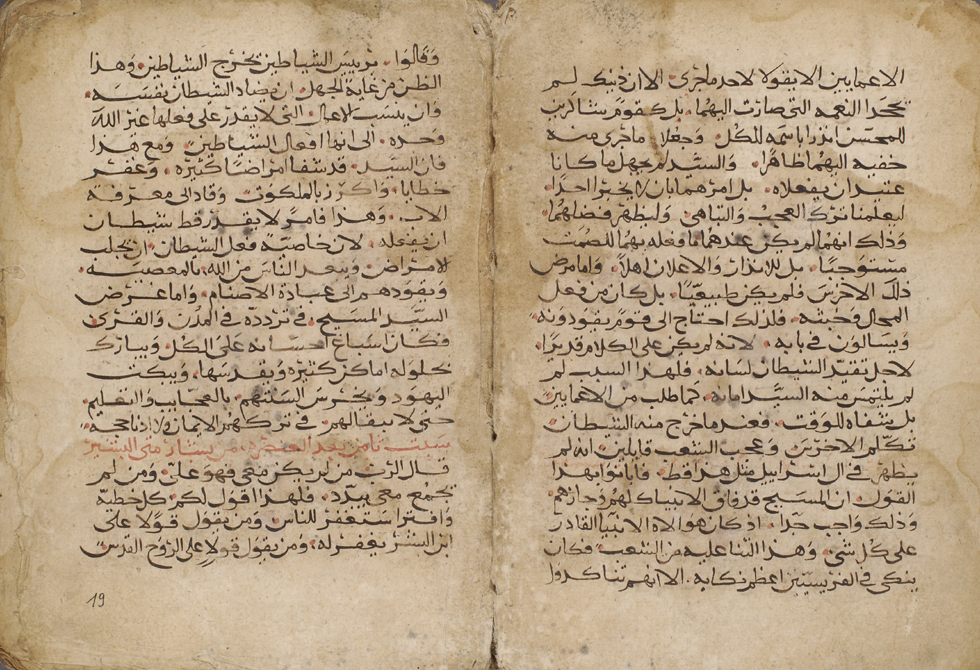 الاعمايين الا يقولا لاحد ماجرى الا ان ذينك لم
يجحدا النعمه التي صارت اليهما بل كقوم شاكرين
للمحسن انذرا باسمه للكل وجعلا ماجرى منه
خفيه اليهما ظاهرا والسيد لم يجهل ما كانا
عتيدان يفعلاه بل امرهما بان لا يخبرا احدا
ليعلمنا ترك العجب والتباهي وليظهر فضلهما
وذلك انهما لم يكن عندهما ما فعله بهما للصمت
مستوجبا بل للانذار والاعلان اهلا واما مرض
ذلك الاخرس فلم يكن طبيعيا بل كان من فعل
المحال وخبثه فلذلك احتاج الى قوم يقودونه
ويسالون في بابه لانه لم يكن على الكلام قديرا
لاجل تقييد الشيطان لسانه فلهذا السبب لم
لم يلتمس منه السيد امانه كما طلب من الاعمايين
بل شفاه للوقت فعند ماخرج منه الشيطان
تكلم الاخرس وعجب الشعب قايلين انه لم
يظهر في ال اسراييل مثل هذا قط فابانوا بهذا
القول ان المسيح قد فاق الانبيا كلهم وجازهم
وذلك واجب جدا اذ كان هو الاه الانبيا القادر
على كل شي وهذا الثنا عليه من الشعب فكان
ينكي في الفريسيين اعظم نكايه الا انهم تناكدوا
وقالوا بريس الشياطين يخرج الشياطين وهذا
الظن من غاية الجهل ان يضاد الشيطان نفسه
وان ينسب الاعمال التي لا يقدر على فعلها غير الله
وحده الى انها افعال الشياطين ومع هذا
فان السيد قد شفا امراضا كثيره وغفر
خطايا واكرز بالملكوت وقاد الى معرفة
الاب وهذا فامر لا يقدر قط شيطان
ان يفعله لان خاصية فعل الشيطان ان يجلب
الامراض ويبعد الناس من الله بالمعصيه
ويقودهم الى عبادة الاصنام واما غرض
السيد المسيح في تردده في المدن والقرى
فكان اسباغ احسانه على الكل ويبارك
بحلوله اماكن كثيره ويقدسها ويبكت
اليهود ويخرس السنتهم بالعجايب والتعليم
حتى لا يبقا لهم في تركهم الايمان ولا اذناحجه
سبت ثامن بعد العنصره من بشارة متى البشير
قال الرب من لم يكن معي فهو علي ومن لم
يجمع معي يبدد فلهذا اقول لكم كل خطيه
وافترا ستغفر للناس ومن يقول قولا على
ابن البشر يغفر له ومن يقول قولا على الروح القدس
19